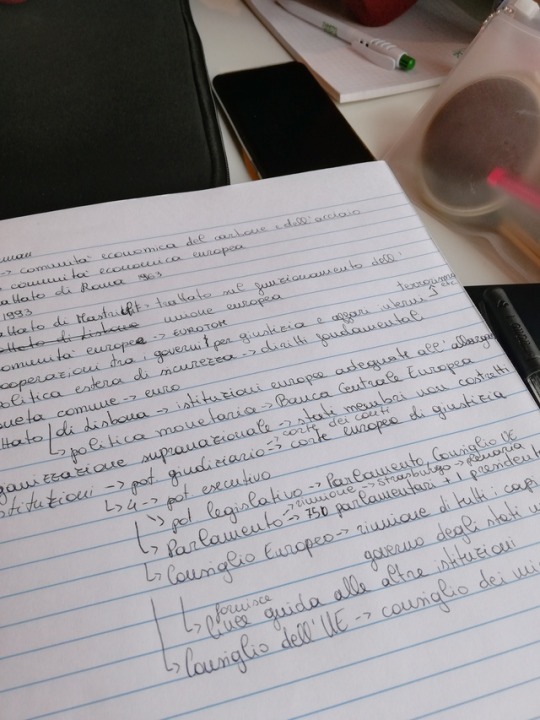 -> comunità economica del carbone e dell'acciaio
comunità economica europea
Trattato di Roma 963
1993
Trattato di Mastricht -> trattato sul funzionamento dell'
unione europea
comunità europea -> EUROTOM
cooperazioni tra i governi per giustizia e affari interni
politica estera di sicurezza -> diritti fondamentali
moneta comune -> euro
di Lisbona -> istituzioni europee adeguate all'
politica monetaria -> Banca Centrale Europea
organizzazione supranazionale -> stati membri non costretti
-> corte dei conti
istituzioni -> pot. giudiziario -> corte europeo di giustizia
4 -> pot. esecutivo
pot. legislativo -> Parlamento Consiglio UE
riunione -> Strasburgo -> plenaria
Parlamento -> 750 parlamentari + 1 presidente
Consiglio Europeo -> riunione di tutti i capi
governo degli stati
fornisce
linee guida alle altre istituzioni
Consiglio dell'UE -> consiglio dei